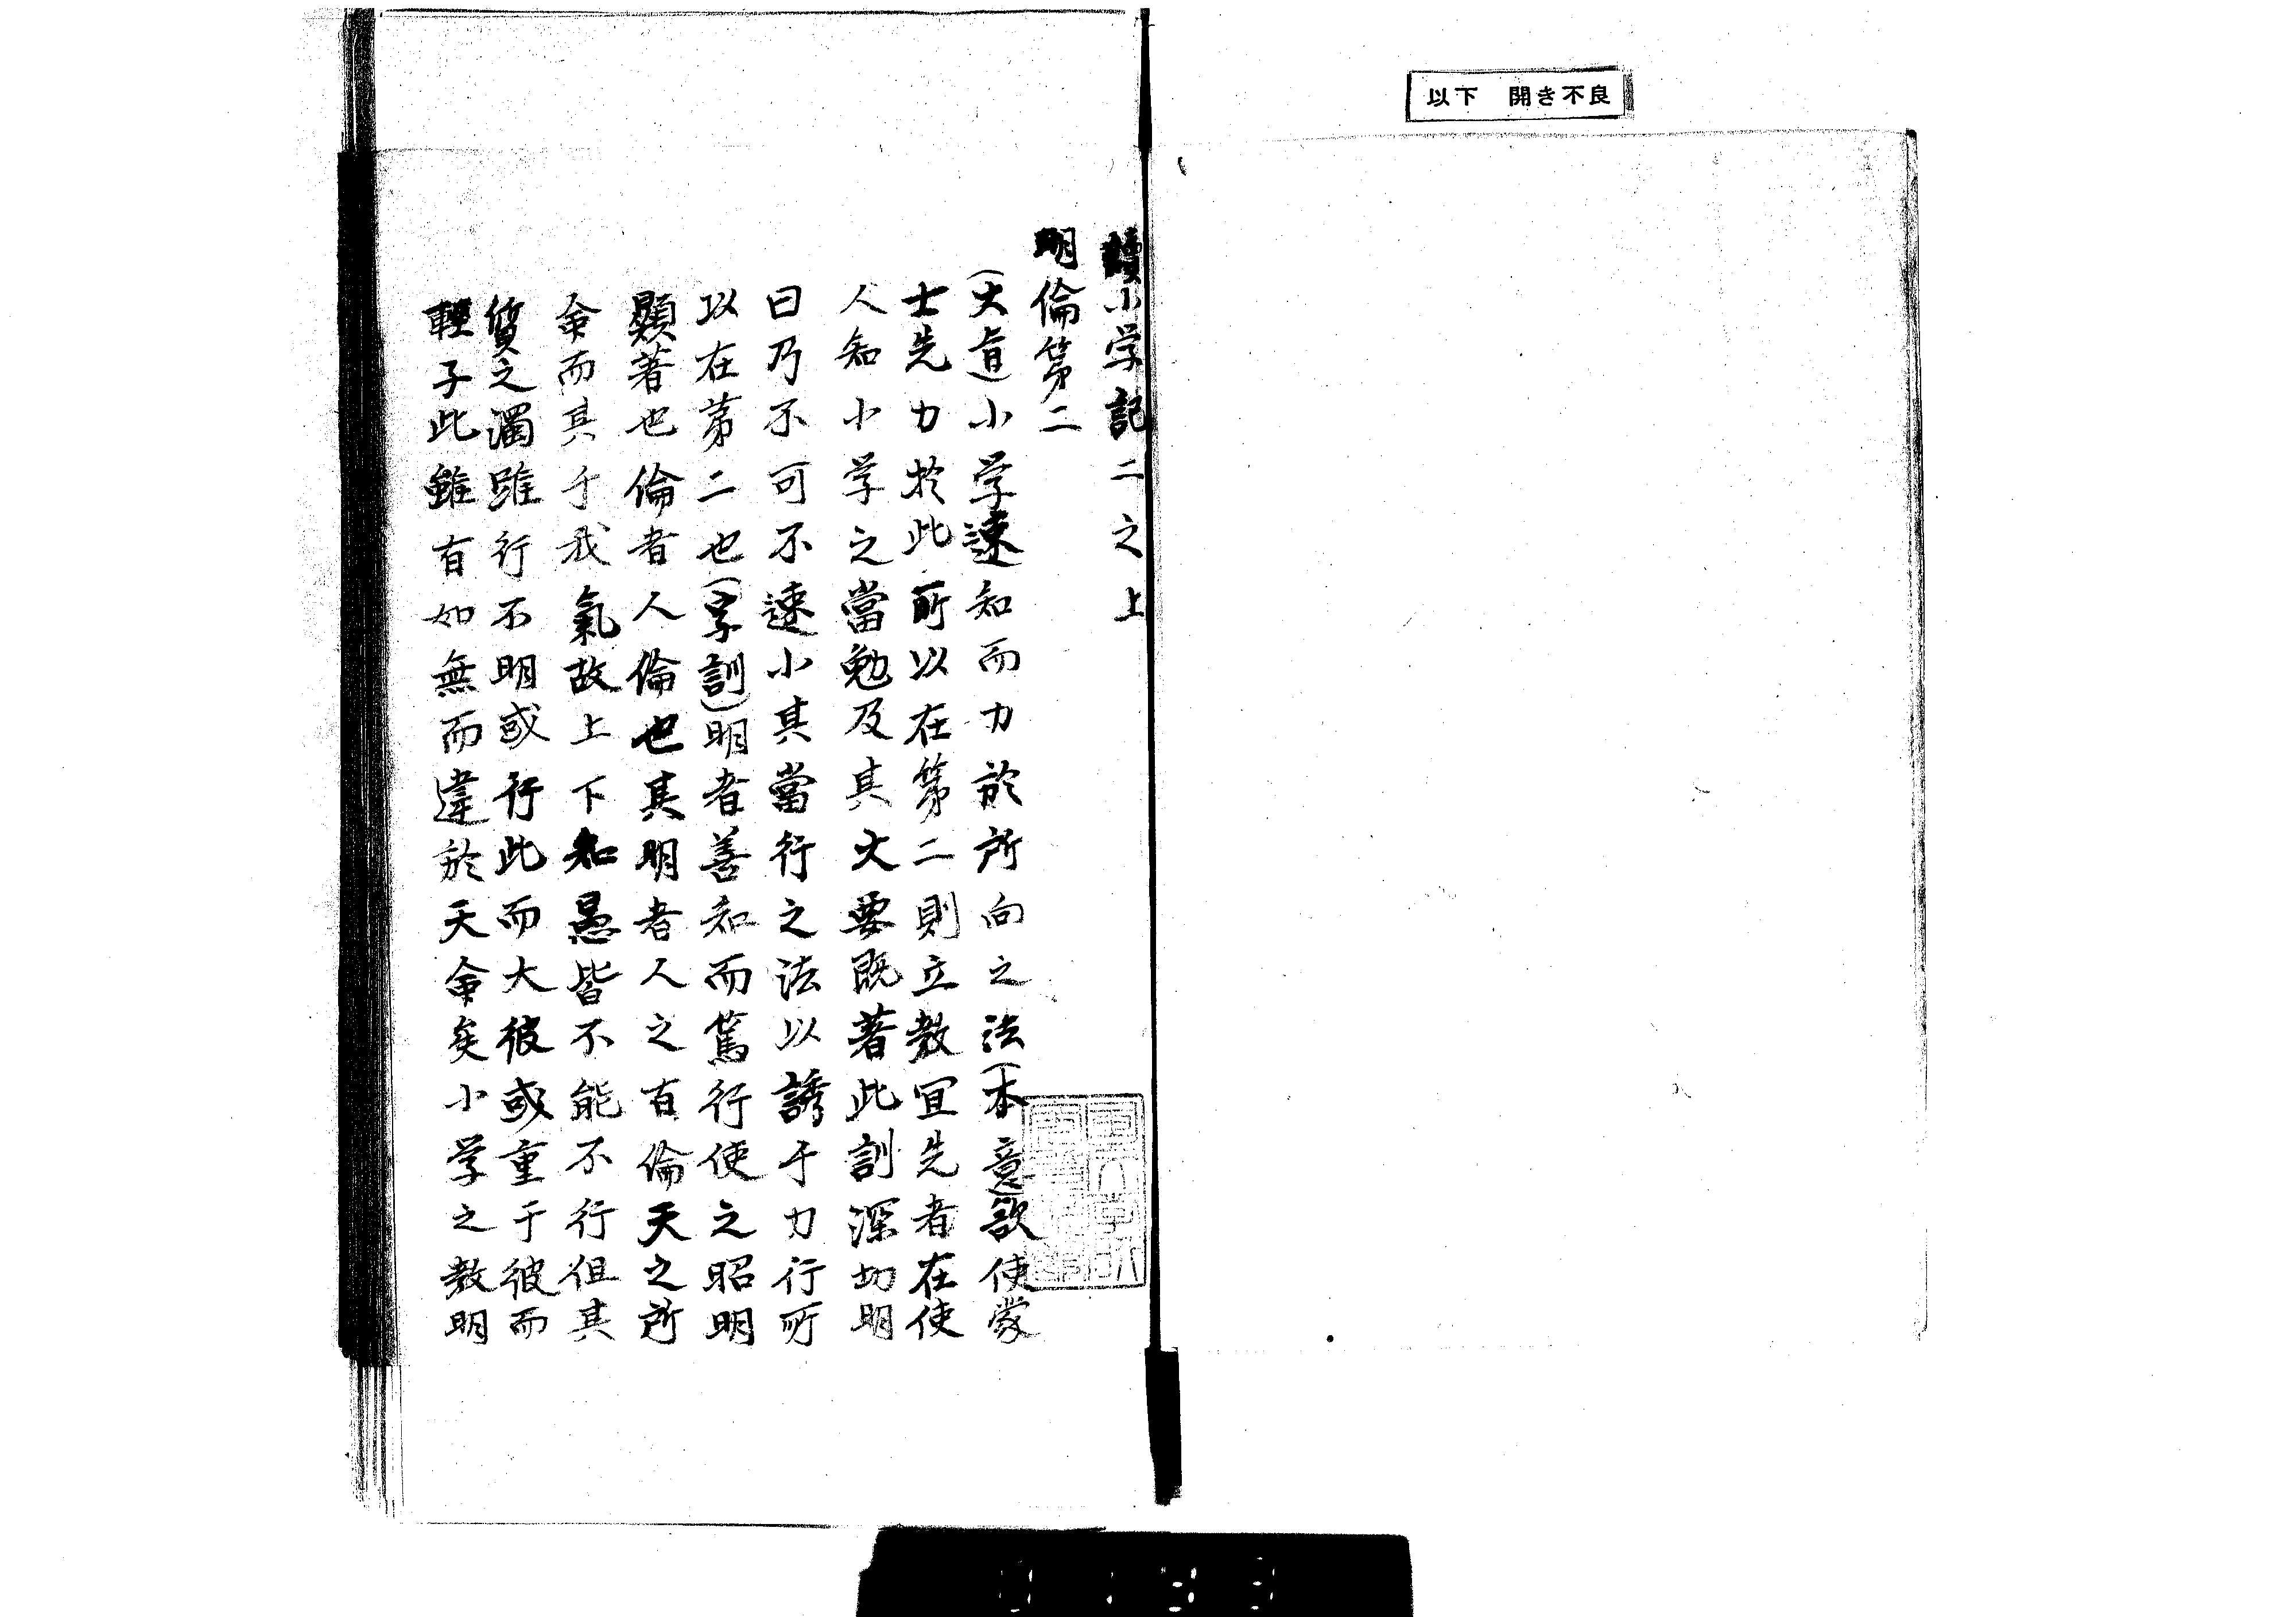 以下 開き不良
讀小学記二之上
明倫第二
(大旨)小学速知而力於所向之法(本意)欲使蒙
士先力於此所以在第二則立教宜先者在使
人知小学之當勉及其大要既著此訓深切明
曰乃不可不速小其當行之法以誘于力行所
以在第二也(字訓)明者善知而篤行使之昭明
顯著也倫者人倫也其明者人之有倫天之所
命而其于我氣故上下知愚皆不能不行但其
質之濁雖行不明或行此而大彼或重于彼而
輕于此雖有如無而違於天命矣小学之教明